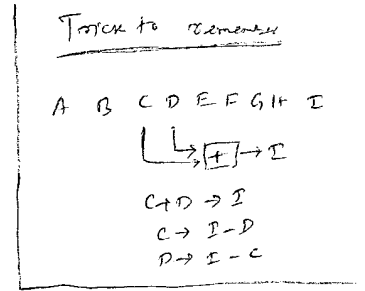 Trick to remember
A B C D E F G H I
+ → I
C+D → I
C → I-D
D → I-C